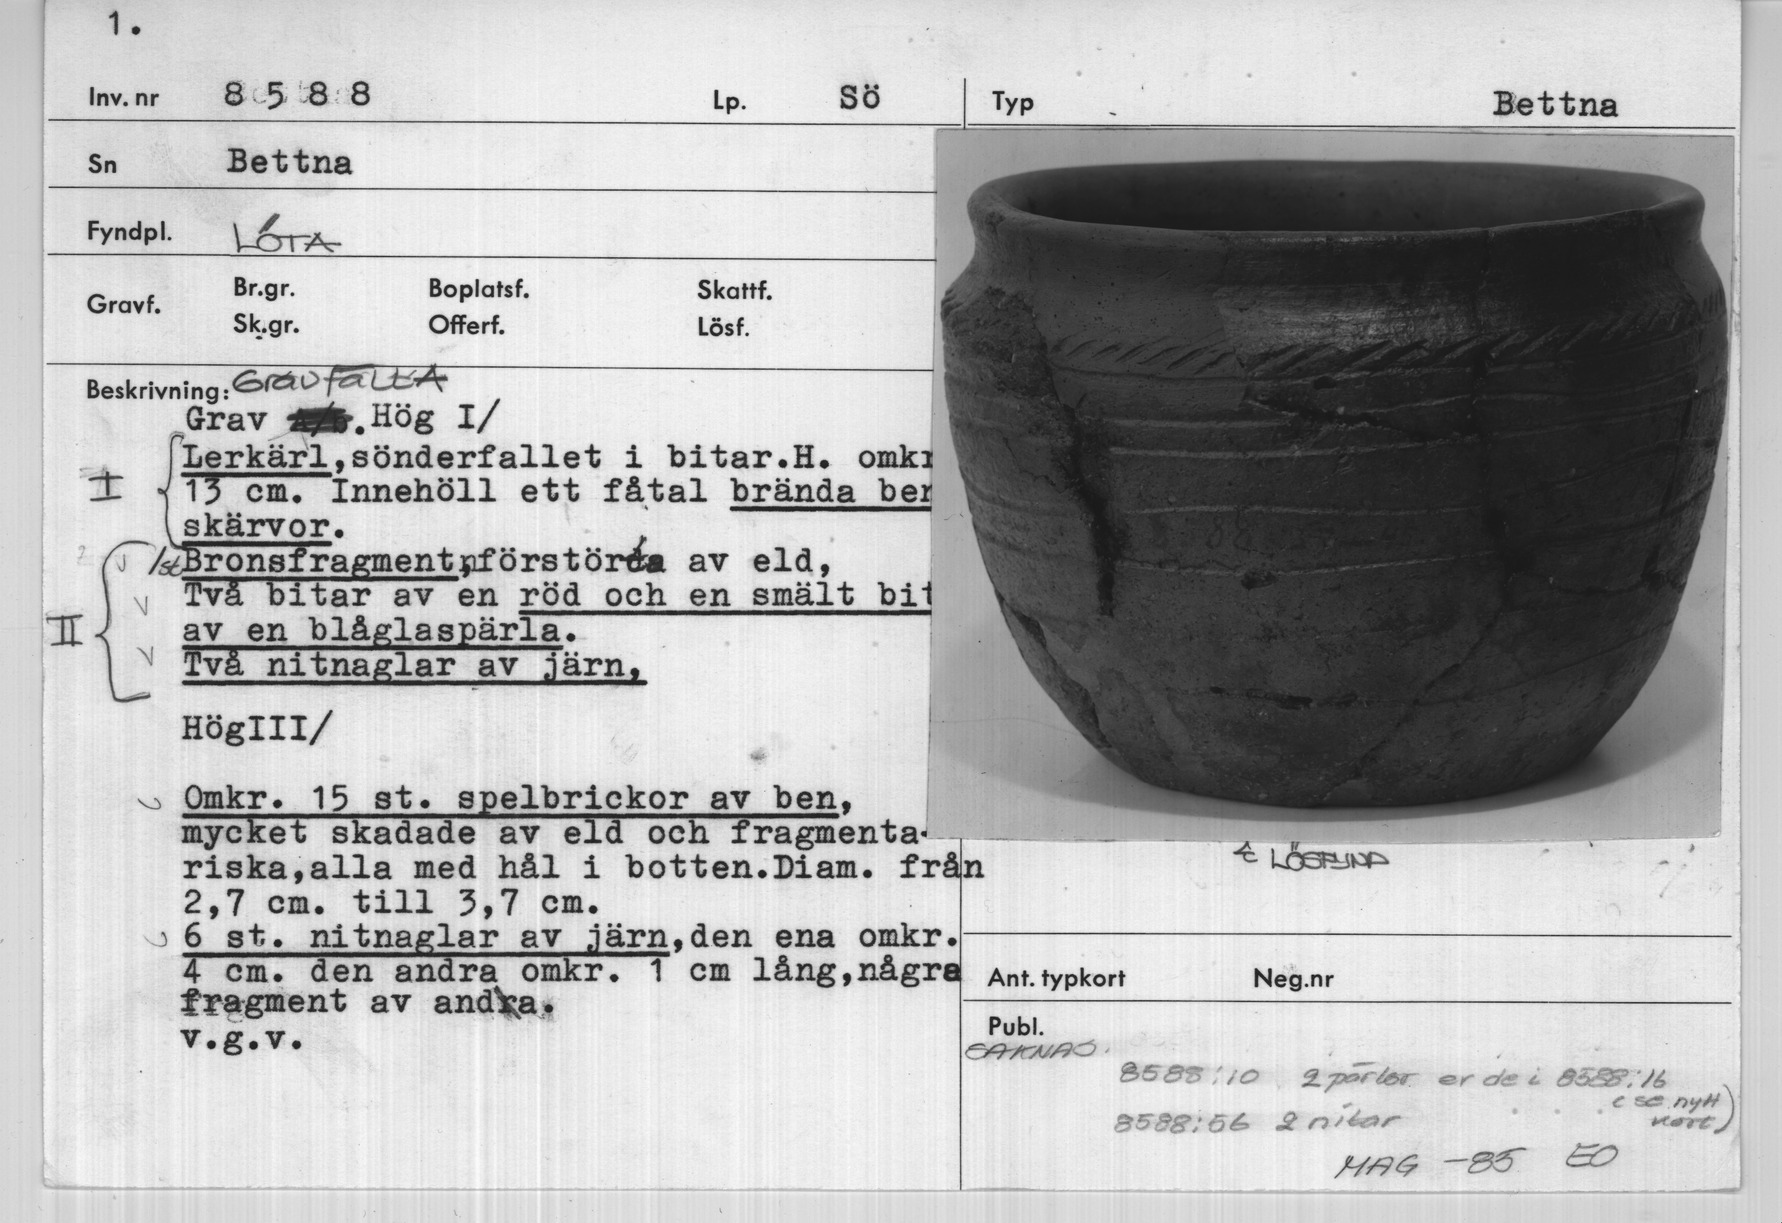 1.
Inv. nr 8588 Lp. Sö Typ Bettna
Sn Bettna
Fyndpl. LÖTA
Gravf. Br.gr. Boplatsf. Skattf.
Sk.gr. Offerf. Lösf.
Beskrivning: GravFältA
Grav . Hög I/
I Lerkärl,sönderfallet i bitar.H. omkr
13 cm. Innehöll ett fåtal brända ben
skärvor.
II 1st Bronsfragment, förstört av eld,
Två bitar av en röd och en smält bit
av en blåglaspärla.
Två nitnaglar av järn,
HögIII/
Omkr. 15 st. spelbrickor av ben,
mycket skadade av eld och fragmenta-
riska,alla med hål i botten.Diam. från
2,7 cm. till 3,7 cm.
6 st. nitnaglar av järn,den ena omkr.
4 cm. den andra omkr. 1 cm lång,några
fragment av andra.
v.g.v.
LÖSFYND
Ant. typkort Neg.nr
Publ.
SAKNAS.
8588:10 2 pärlor er de i 8588:16
(se nytt
kort)
8588:56 2 nitar
MAG -85 EO